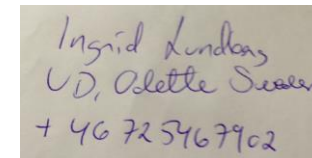 Ingrid Lundberg
VD, Odette Sweden
+ 46 725467902